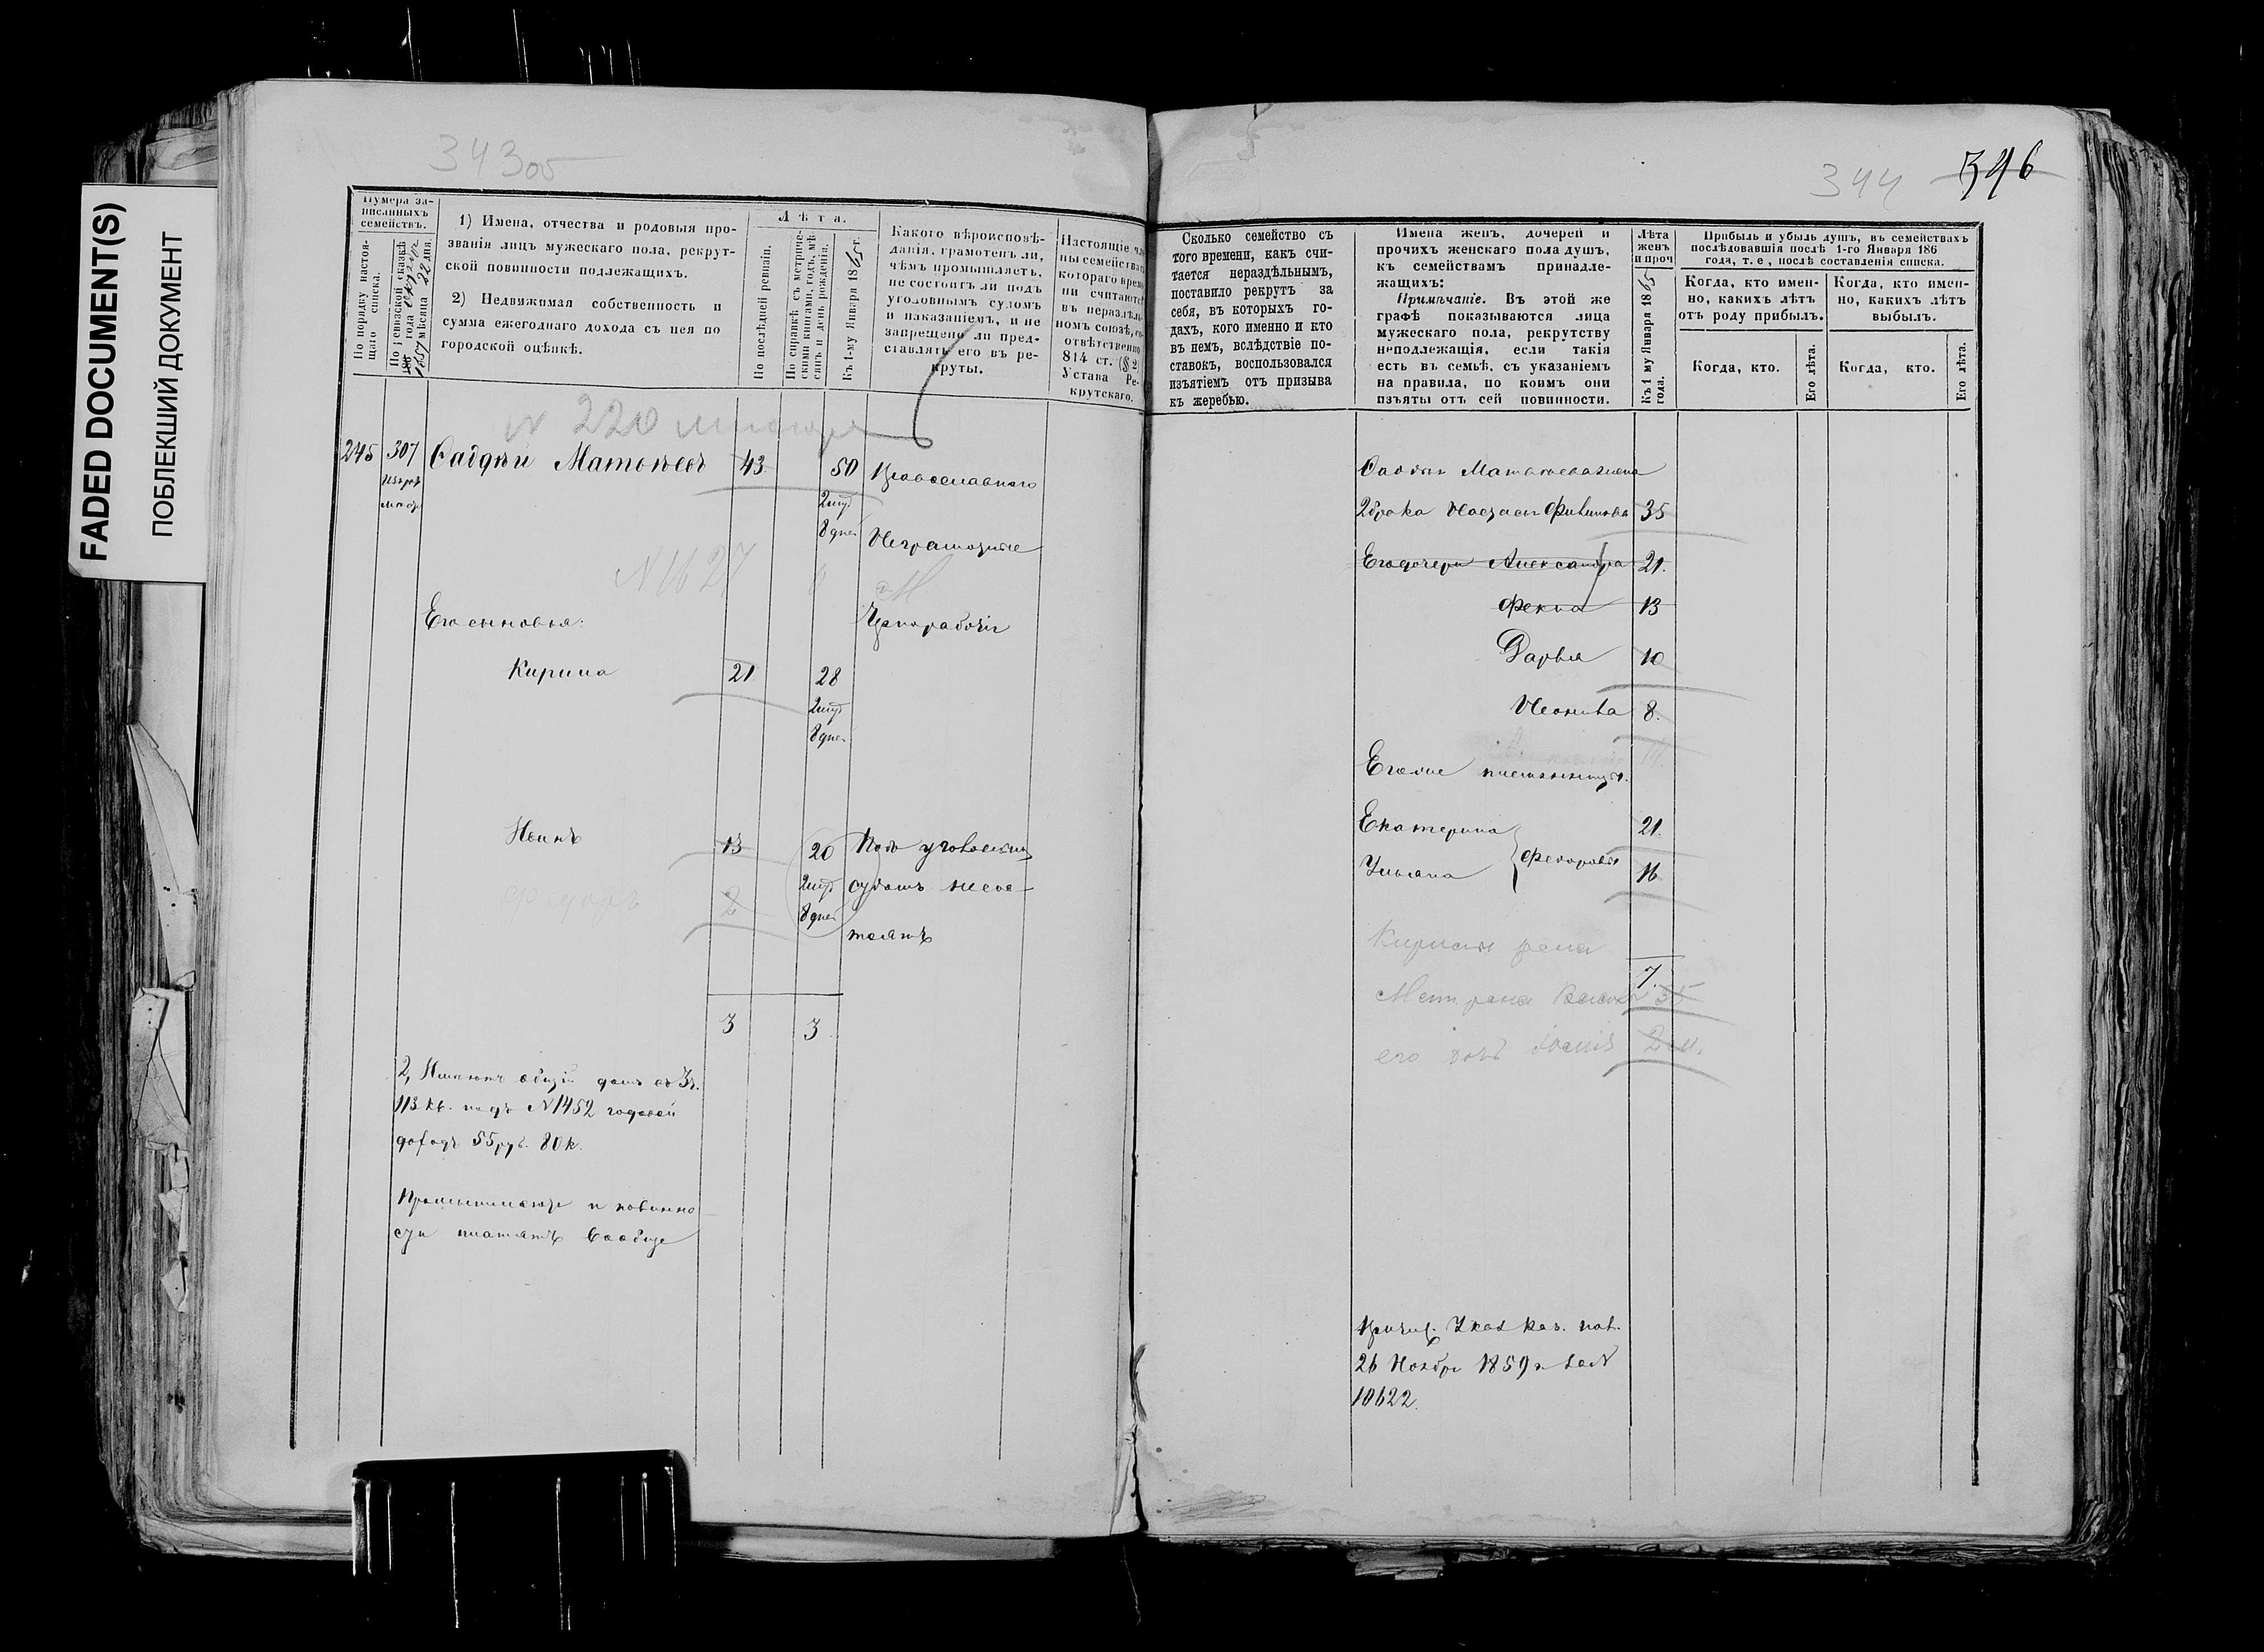 FADED DOCUMENT(S)
ПОБЛЕКШИЙ ДОКУМЕНТ
343об
Нумера за-
писанныхъ
семействъ.
По порядку настоя-
щаго списка.
По ревизской сказкѣ
1857 года
мѣсяца 22 дня.
1) Имена, отчества и родовыя про-
званія лицъ мужескаго пола, рекрут-
ской повинности подлежащихъ.
2) Недвижимая собственность и
сумма ежегоднаго дохода съ нея по
городской оцѣнкѣ.
Лѣта.
По послѣдней ревизіи.
По справкѣ съ метриче-
скими книгами, годъ, мѣ-
сяцъ и день рожденія.
Къ 1-му Января 1865 г.
Какого вѣроисповѣ-
данія, грамотенъ ли,
чѣмъ промышляетъ,
не состоитъ ли подъ
уголовнымъ судомъ
и наказаніемъ, и не
запрещено ли пред-
ставлять его въ ре-
круты.
Настоящіе чле-
ны семейства
котораго време-
ни считаются
въ нераздѣль-
номъ союзѣ,
отвѣтственно
814 ст. (§ 2)
Устава Ре-
крутскаго.
№ 220
245 307 Матвѣевъ 43 50 Православнаго
2 мѣс
8 дней
Неграмотные
№ 1627
Его сыновья: Чернорабочіе
Кирила 21 28
2 мѣс
8 дней
Иванъ 13 20 Подъ уголовнымъ
2 мѣс судомъ несос-
8 дней тоятъ
Федоръ 2
3 3
2, Имѣютъ общій домъ въ 3 ч.
113 кв. подъ № 1452 годовой
доходъ 55 руб. 80 к.
Промышляютъ и повинно-
сти платятъ вообще
344 346
Сколько семейство съ
того времени, какъ счи-
тается нераздѣльнымъ,
поставило рекрутъ за
себя, въ которыхъ го-
дахъ, кого именно и кто
въ немъ, вслѣдствіе по-
ставокъ, воспользовался
изъятіемъ отъ призыва
къ жеребью.
Имена женъ, дочерей и
прочихъ женскаго пола душъ,
къ семействамъ принадле-
жащихъ:
Примѣчаніе. Въ этой же
графѣ показываются лица
мужескаго пола, рекрутству
неподлежащія, если такія
есть въ семьѣ, съ указаніемъ
на правила, по коимъ они
изъяты отъ сей повинности.
Лѣта
женъ
и проч
Къ 1 му Января 1865
года.
Прибыль и убыль душъ, въ семействахъ
послѣдовавшія послѣ 1-го Января 186
года, т. е., послѣ составленія списка.
Когда, кто имен-
но, какихъ лѣтъ
отъ роду прибылъ.
Когда, кто имен-
но, какихъ лѣтъ
выбылъ.
Когда, кто.
Его лѣта.
Когда, кто.
Его лѣта.
Матвѣева жена
2 брака 35
Его дочери Александра 21.
Фекла 13
Дарья 10
Неонила 8.
Его же племянницы.
Екатерина 21
Федоровы
Ульяна 16
Кирилы жена
7.
35
его
Причис. Указ Каз. пал.
26 Ноября 1859 г. за №
10622.